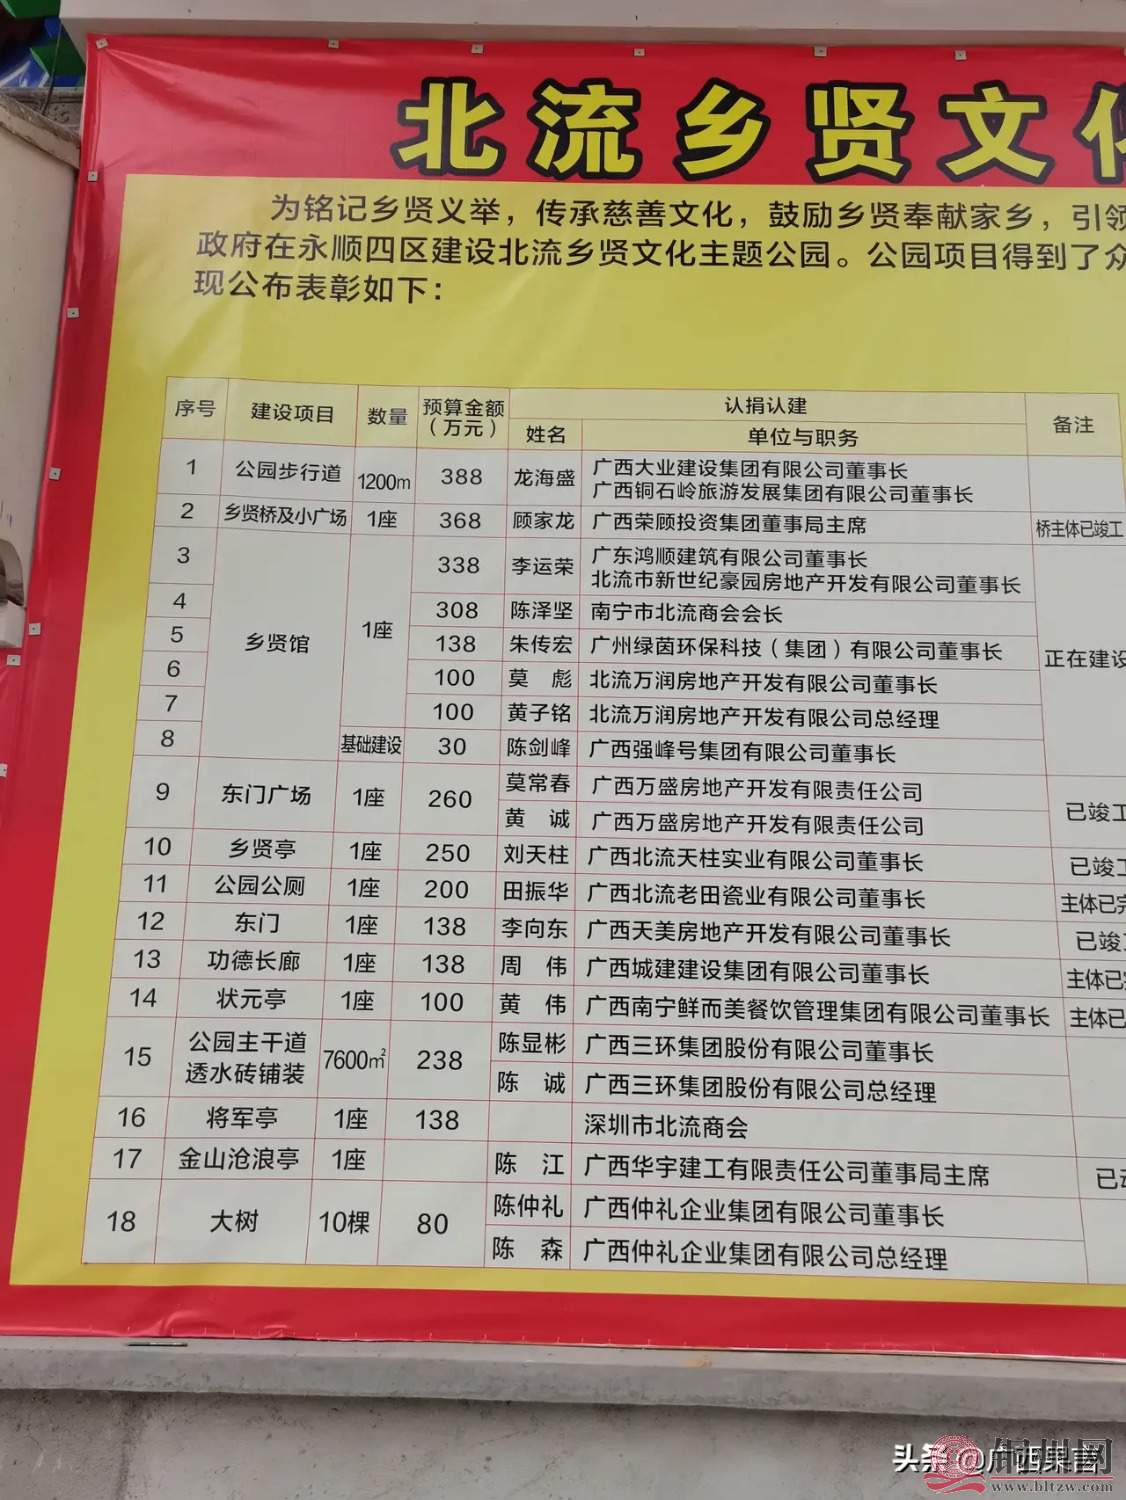 北流乡贤文化
为铭记乡贤义举，传承慈善文化，鼓励乡贤奉献家乡，引领
政府在永顺四区建设北流乡贤文化主题公园。公园项目得到了众
现公布表彰如下：
序号 建设项目 数量 预算金额（万元） 认捐认建 备注
姓名 单位与职务
1 公园步行道 1200m 388 龙海盛 广西大业建设集团有限公司董事长
广西铜石岭旅游发展集团有限公司董事长
2 乡贤桥及小广场 1座 368 顾家龙 广西荣顾投资集团董事局主席 桥主体已竣工
3 乡贤馆 1座 338 李运荣 广东鸿顺建筑有限公司董事长
北流市新世纪豪园房地产开发有限公司董事长
4 308 陈泽坚 南宁市北流商会会长
5 138 朱传宏 广州绿茵环保科技（集团）有限公司董事长 正在建设
6 100 莫彪 北流万润房地产开发有限公司董事长
7 100 黄子铭 北流万润房地产开发有限公司总经理
8 基础建设 30 陈剑峰 广西强峰号集团有限公司董事长
9 东门广场 1座 260 莫常春 广西万盛房地产开发有限责任公司 已竣工
黄诚 广西万盛房地产开发有限责任公司
10 乡贤亭 1座 250 刘天柱 广西北流天柱实业有限公司董事长 已竣工
11 公园公厕 1座 200 田振华 广西北流老田瓷业有限公司董事长 主体已完
12 东门 1座 138 李向东 广西天美房地产开发有限公司董事长 已竣
13 功德长廊 1座 138 周伟 广西城建建设集团有限公司董事长 主体已
14 状元亭 1座 100 黄伟 广西南宁鲜而美餐饮管理集团有限公司董事长 主体已
15 公园主干道透水砖铺装 7600㎡ 238 陈显彬 广西三环集团股份有限公司董事长
陈诚 广西三环集团股份有限公司总经理
16 将军亭 1座 138 深圳市北流商会
17 金山沧浪亭 1座 陈江 广西华宇建工有限责任公司董事局主席 已
18 大树 10棵 80 陈仲礼 广西仲礼企业集团有限公司董事长
陈森 广西仲礼企业集团有限公司总经理
头条@广西果言
www.bltzw.com